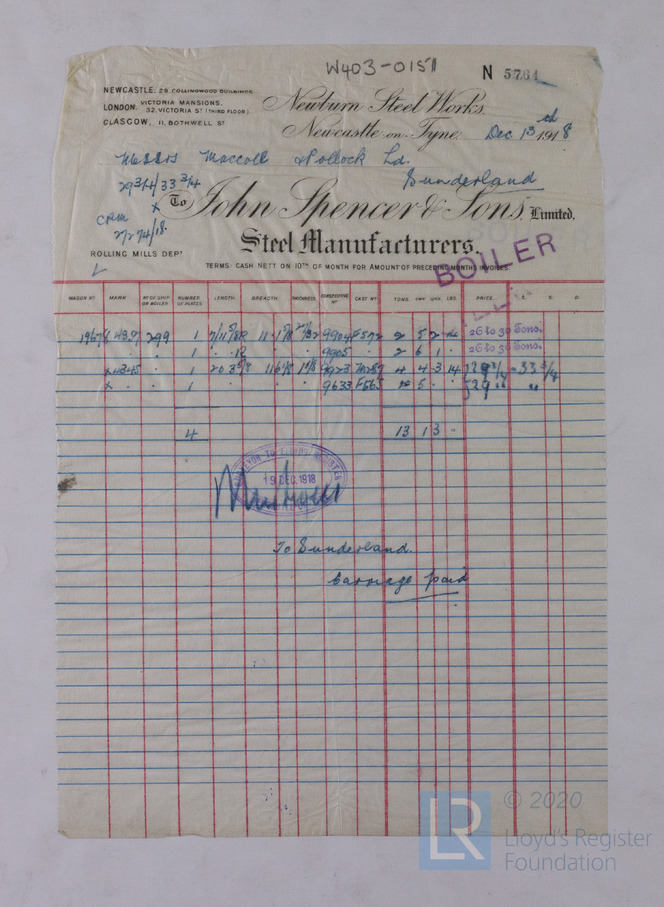 W403-0151
N 5764
NEWCASTLE, 29 COLLINGWOOD BUILDINGS.
LONDON, VICTORIA MANSIONS,
32, VICTORIA ST (THIRD FLOOR)
GLASGOW, 11, BOTHWELL ST
Newburn Steel Works,
Newcastle on Tyne Dec 13th 1918
Messrs Maccoll & Pollock Ld.
Sunderland
29 3/4 / 33 3/4
x
To John Spencer & Sons, Limited.
27/4/18.
Steel Manufacturers.
BOILER
ROLLING MILLS DEPT
TERMS: CASH NETT ON 10TH OF MONTH FOR AMOUNT OF PRECEDING MONTHS INVOICES
WAGON No MARK No OF SHIP OR BOILER NUMBER OF PLATES LENGTH. BREADTH. THICKNESS. CONSECUTIVE No CAST No TONS. CWT QRS. LBS. PRICE. £ S. D.
299 1 9904 2 5 2 26 to 30 Tons.
1 9905 2 6 1 - 26 to 30 Tons.
x4345 1 9923 4 4 3 14 29 3/4 - 33 3/4
x 1 9633 5 - 29 " "
4 13 1 3 -
SURVEYOR TO LLOYD'S REGISTER
19 DEC. 1918
To Sunderland.
Carriage paid
LR © 2020
Lloyd's Register
Foundation